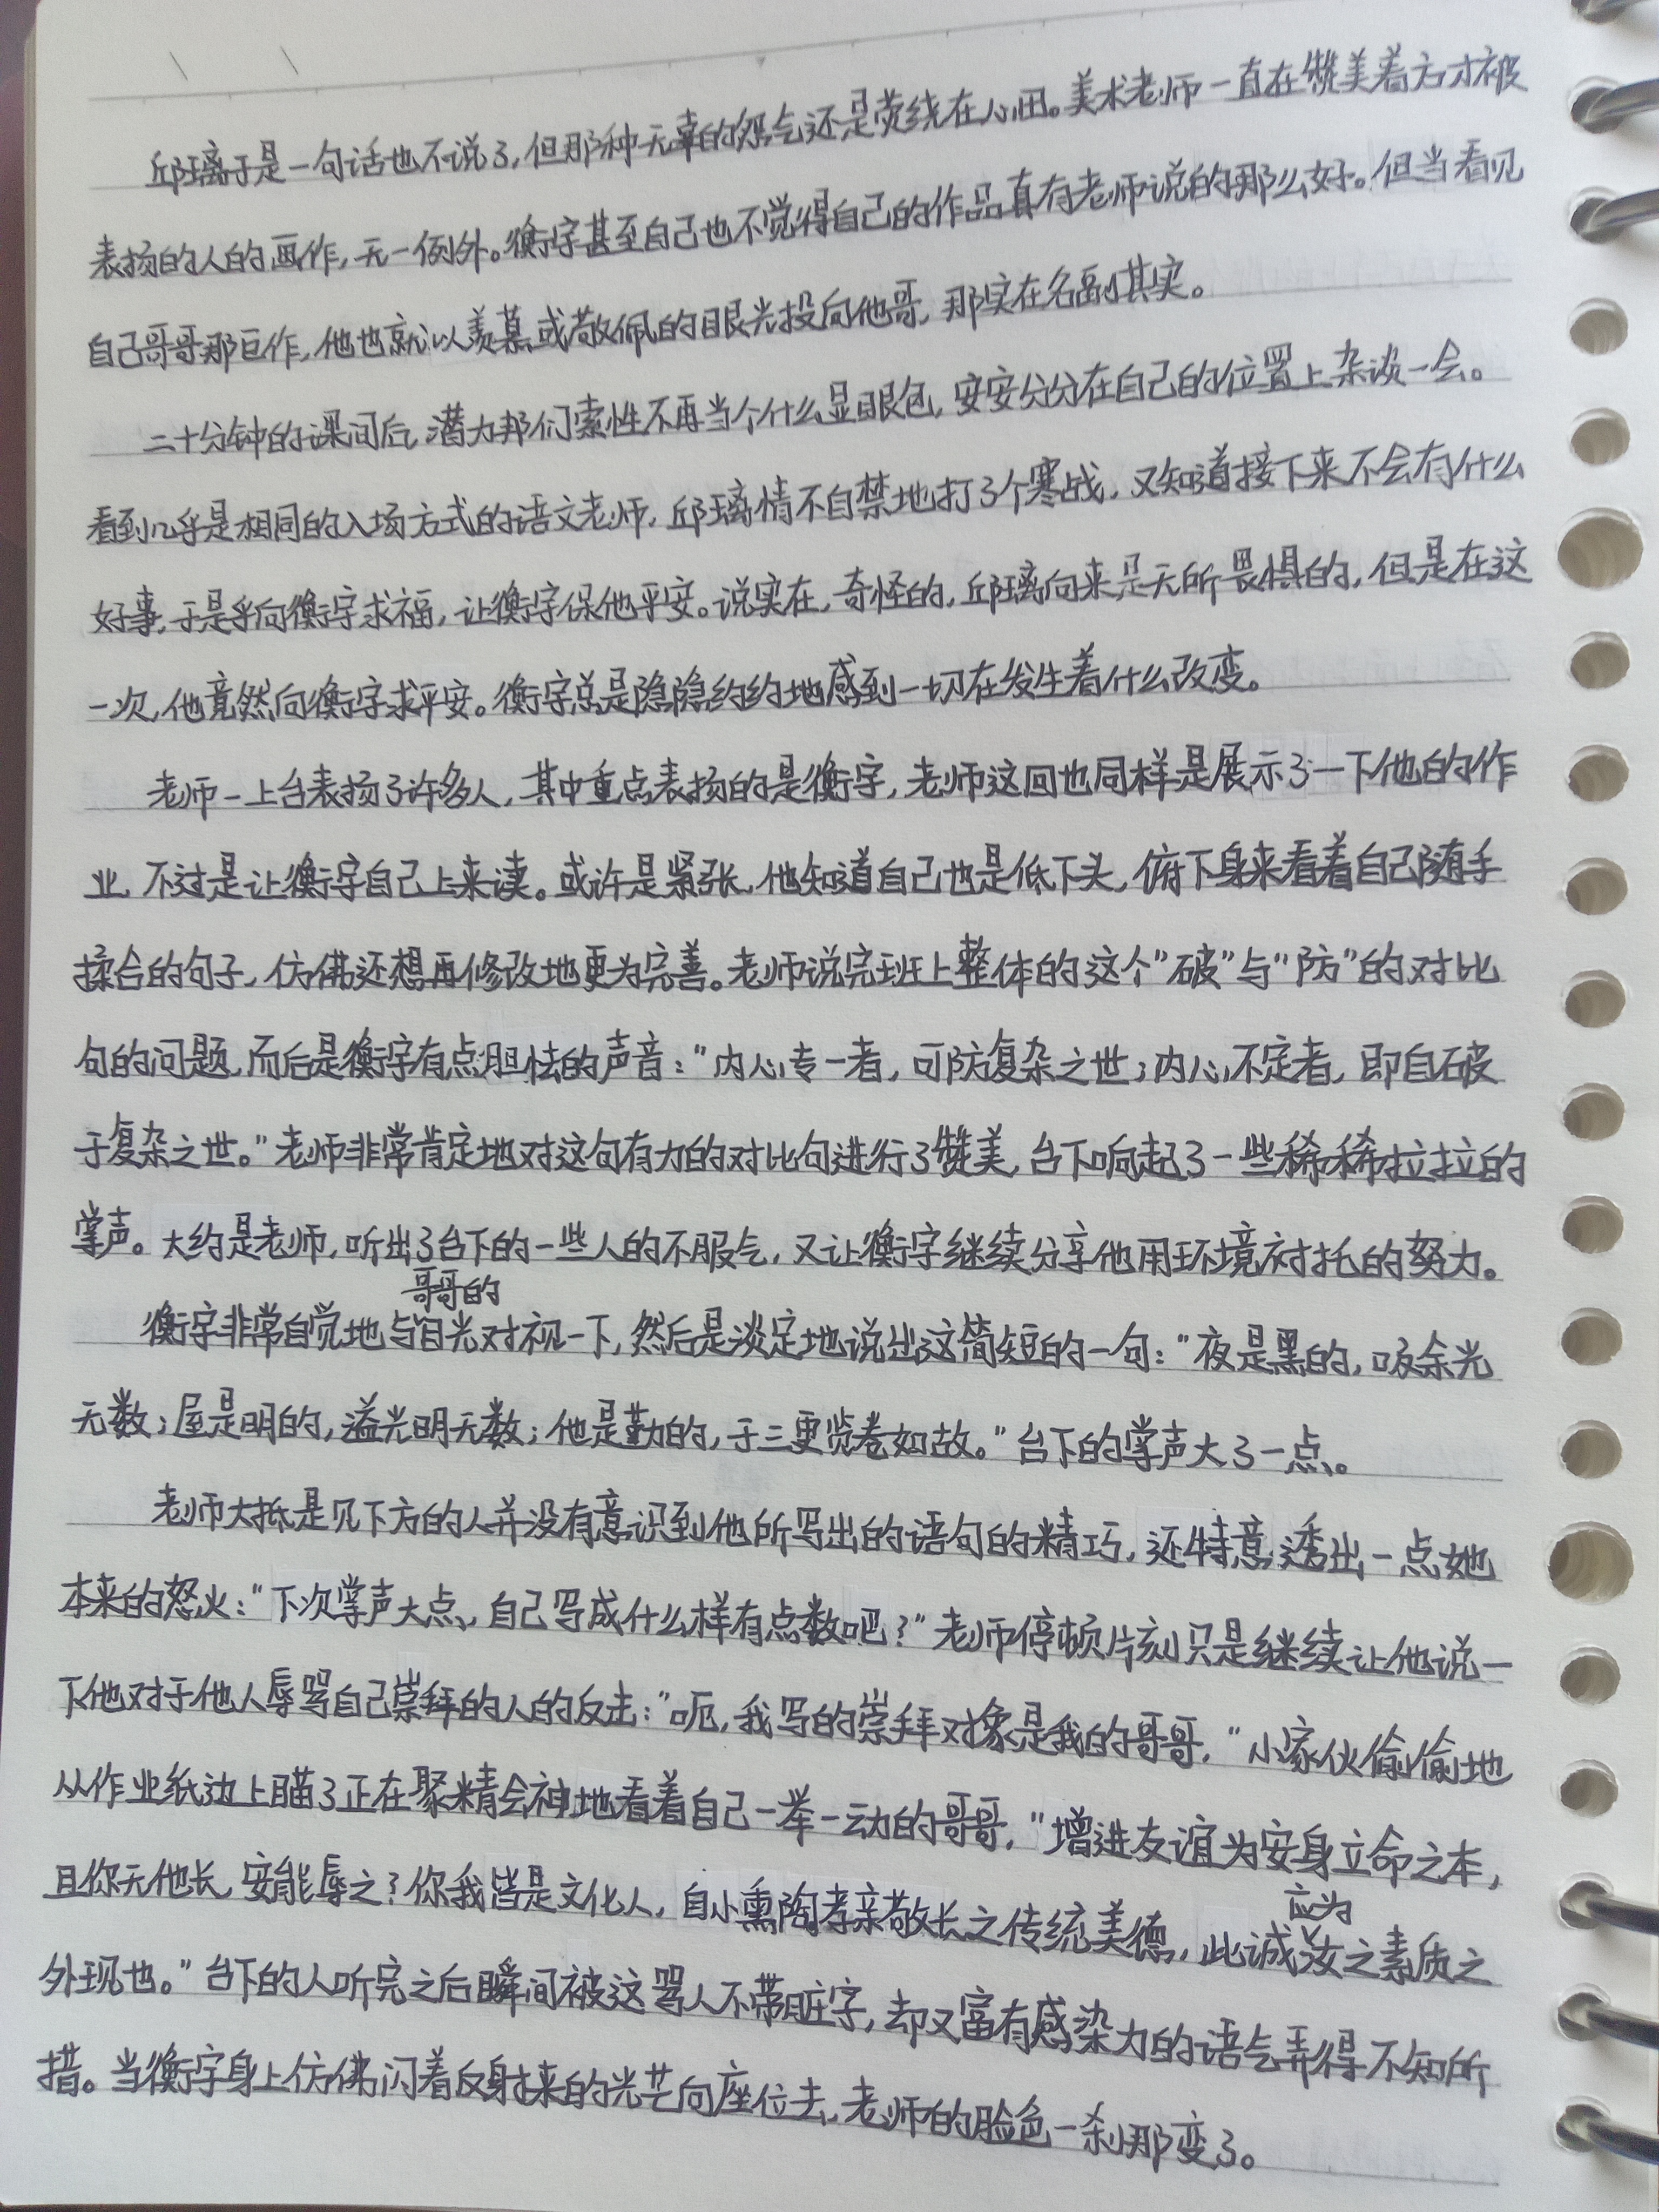 邱璃于是一句话也不说了,但那种无辜的怨气还是萦绕在心田。美术老师一直在赞美着方才被
表扬的人的画作,无一例外。衡宇甚至自己也不觉得自己的作品真有老师说的那么好。但当看见
自己哥哥那巨作,他也就以羡慕或敬佩的眼光投向他哥,那实在名副其实。
二十分钟的课间后,潜力邦们索性不再当个什么显眼包,安安分分在自己的位置上杂谈一会。
看到几乎是相同的入场方式的语文老师,邱璃情不自禁地打了个寒战,又知道接下来不会有什么
好事,于是乎向衡宇求福,让衡宇保他平安。说实在,奇怪的,邱璃向来是无所畏惧的,但是在这
一次,他竟然向衡宇求平安。衡宇总是隐隐约约地感到一切在发生着什么改变。
老师一上台表扬了许多人,其中重点表扬的是衡宇,老师这回也同样是展示了一下他的作
业,不过是让衡宇自己上来读。或许是紧张,他知道自己也是低下头,俯下身来看着自己随手
揉合的句子,仿佛还想再修改地更为完善。老师说完班上整体的这个"破"与"防"的对比
句的问题,而后是衡宇有点胆怯的声音:"内心专一者,可防复杂之世;内心不定者,即自破
于复杂之世。"老师非常肯定地对这句有力的对比句进行了赞美,台下响起了一些稀稀拉拉的
掌声。大约是老师,听出了台下的一些人的不服气,又让衡宇继续分享他用环境衬托的努力。
哥哥的
衡宇非常自觉地与目光对视一下,然后是淡定地说出这简短的一句:"夜是黑的,吸余光
无数;屋是明的,溢光明无数;他是勤的,于三更览卷如故。"台下的掌声大了一点。
老师大抵是见下方的人并没有意识到他所写出的语句的精巧,还特意透出一点她
本来的怒火:"下次掌声大点,自己写成什么样有点数吧?"老师停顿片刻只是继续让他说一
下他对于他人辱骂自己崇拜的人的反击:"呃,我写的崇拜对象是我的哥哥,"小家伙偷偷地
从作业纸边上瞄了正在聚精会神地看着自己一举一动的哥哥,"增进友谊为安身立命之本,
且你无他长,安能辱之?你我皆是文化人,自小熏陶孝亲敬长之传统美德,此诚汝之素质之
应为
外现也。"台下的人听完之后瞬间被这骂人不带脏字,却又富有感染力的语气弄得不知所
措。当衡宇身上仿佛闪着反射来的光芒向座位去,老师的脸色一刹那变了。